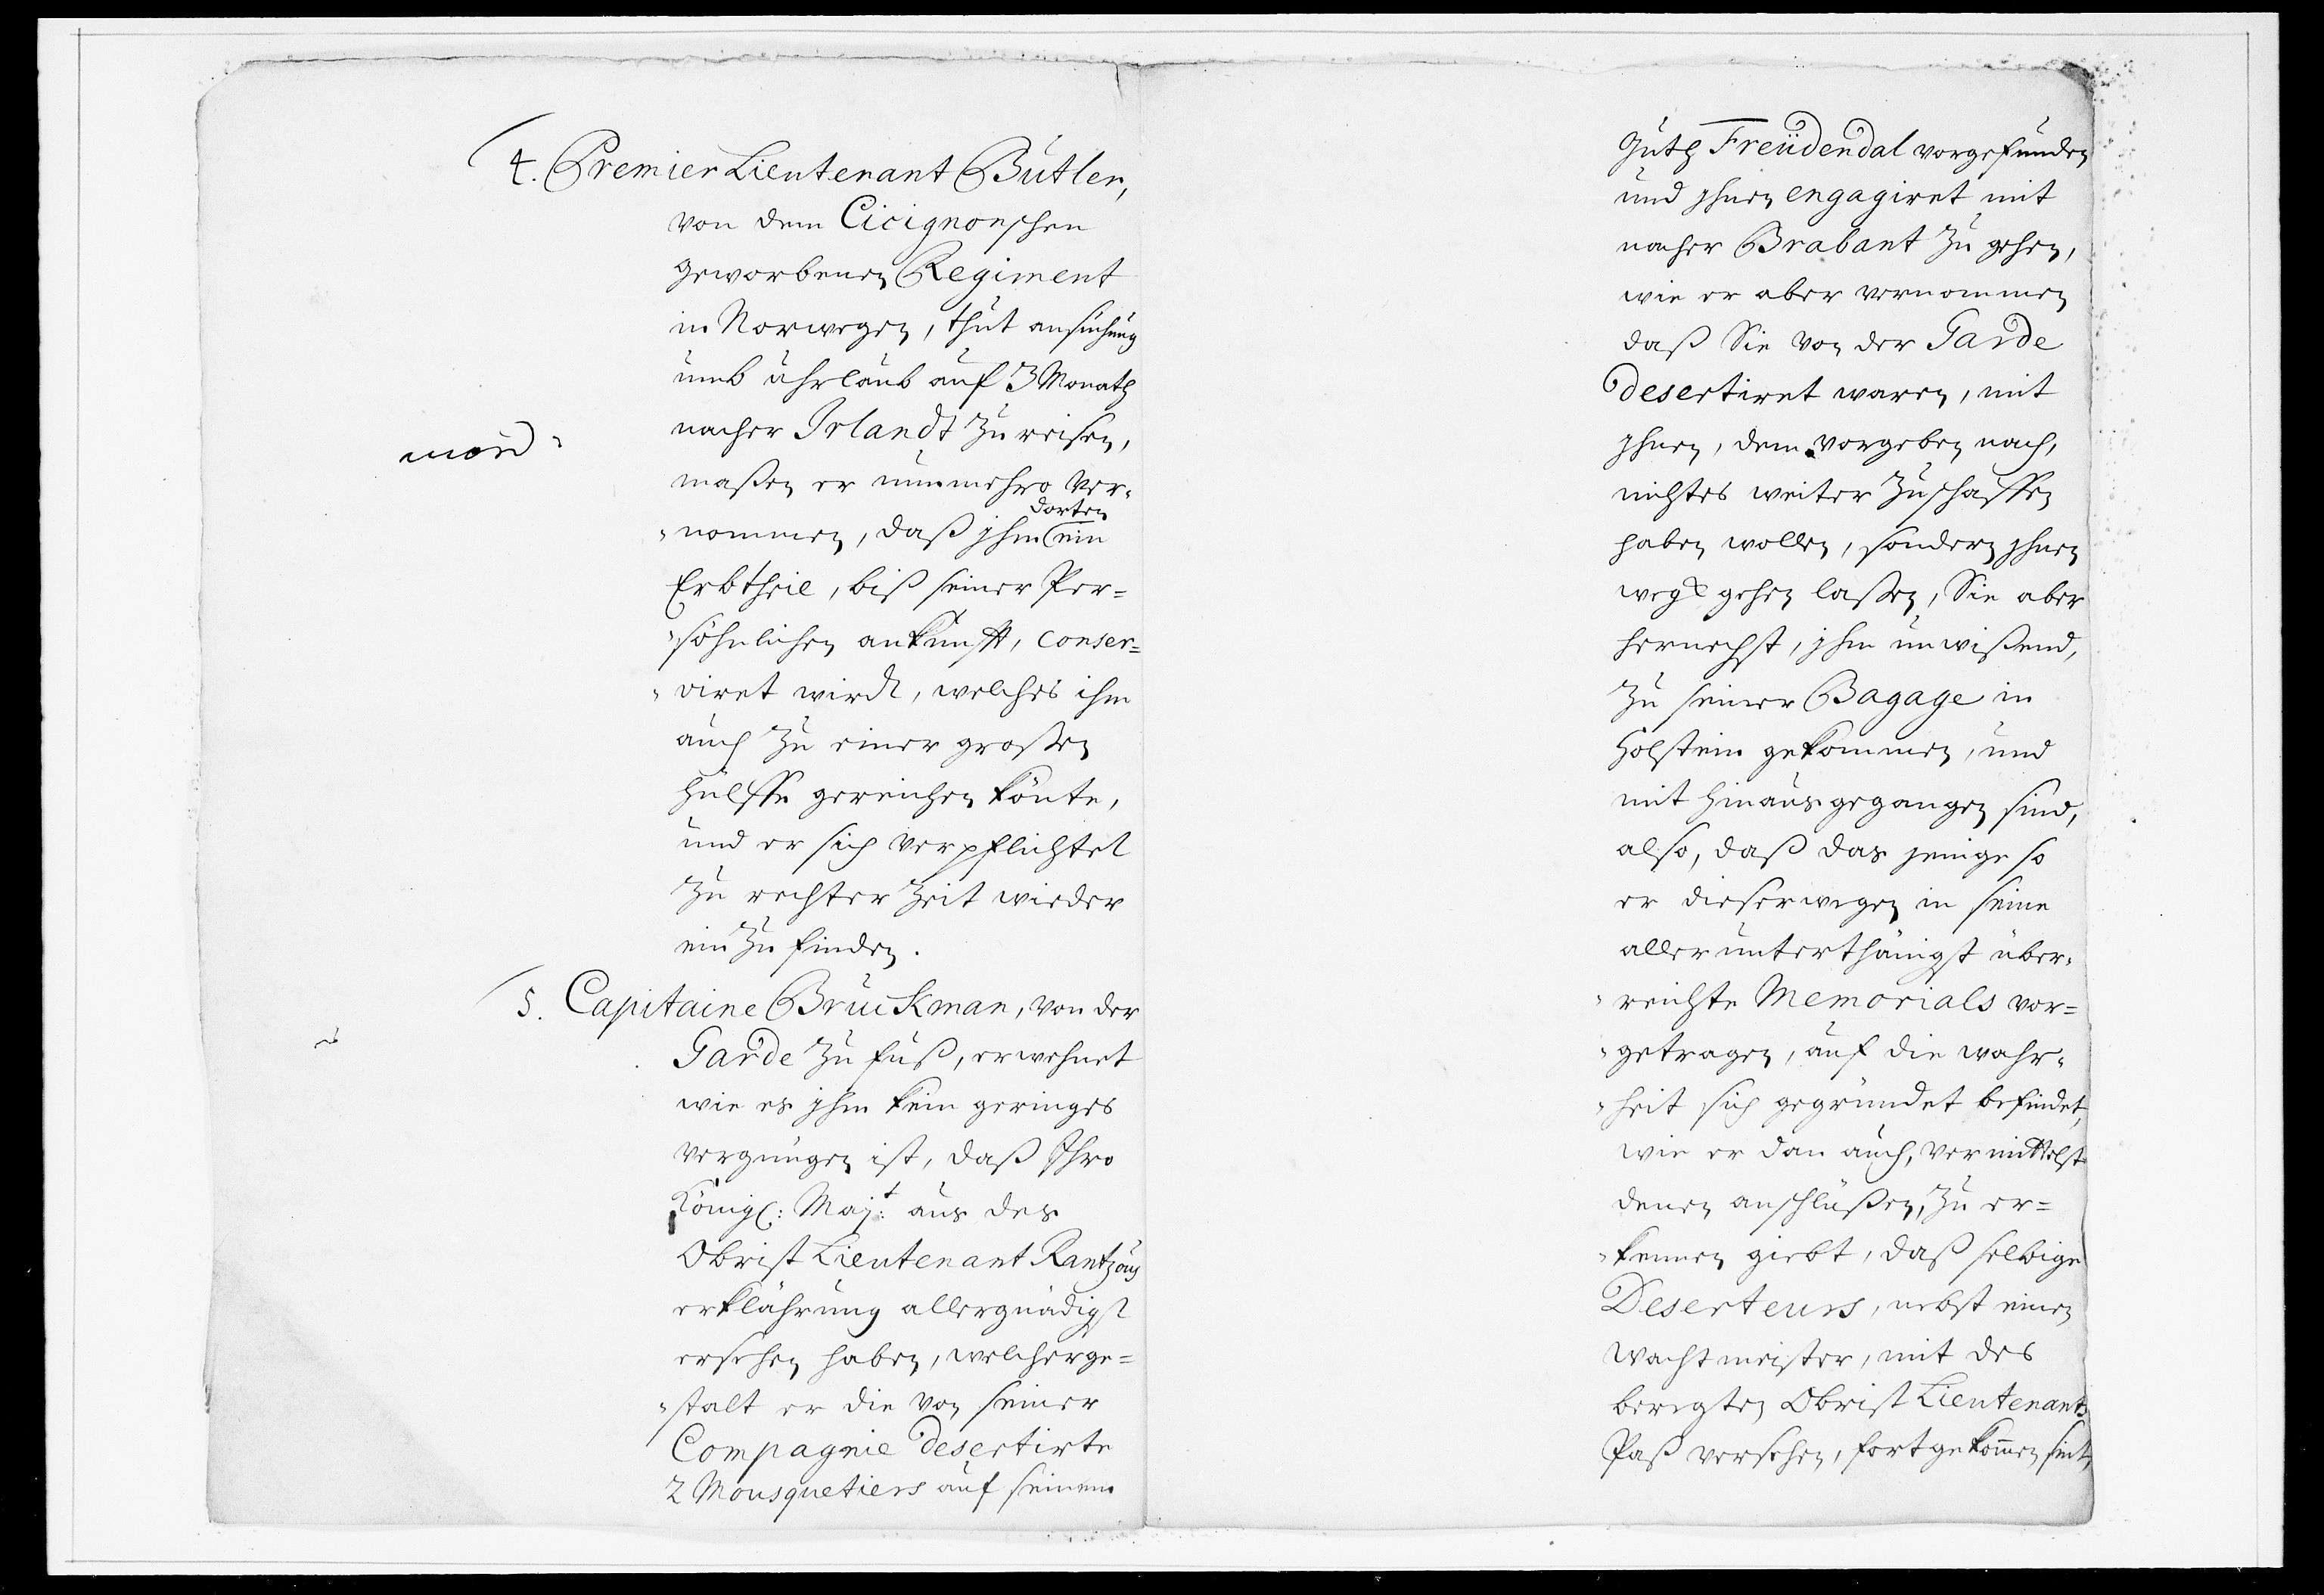 4. Premier Lieutenant Butler,
von dem Cicignonschen
geworbenen Regiment
in Norwegen, thut ansuchung
umb uhrlaub auf 3 Monath
nacher Irlandt zu reisen,
maßen er nunmehro ver=
=nommen, daß jhm dorten ein
Erbtheil, biß seiner Per=
=söhnlichen ankunfft, conser=
=viret wirdt, welches ihm
auch zu einer großen
hülffe gereichen könte,
und er sich verpflichtet
zu rechter Zeit wieder
ein zu finden.
5. Capitaine Bruckman, von der
Garde zu fuß, erwehnet
wie es jhm kein geringes
vergnügen ist, daß Ihro
Königl: Majt: aus des
Obrist Lieutenant Rantzau
erklährung allergnädigst
ersehen haben, welcherge=
=stalt er die von seiner
Compagnie desertirte
2 Mousquetiers auf seinem
Guth Freüdendal vorgefunden
und jhnen engagiret mit
nacher Brabant zu gehen,
wie er aber vernommen
daß Sie von der Garde
desertiret waren, mit
jhnen, dem vorgeben nach,
nichtes weiter zuschaffen
haben wollen, sondern jhnen
wegk gehen laßen, Sie aber
hernechst, jhm unwißend,
zu seiner Bagage in
Holstein gekommen, und
mit hinaus gegangen sind,
also, daß das jenige so
er dieserwegen in seine
allerunterthänigst über=
=reichte Memorials vor=
=getragen, auf die wahr=
=heit sich gegründet befindet,
wie er dan auch, vermittelst
denen anschlüßen, zu er=
=kennen giebt, daß selbige
Deserteurs, nebst einen
Wachtmeister, mit des
beregten Obrist Lieutenants
Paß versehen, fortgekommen sint,